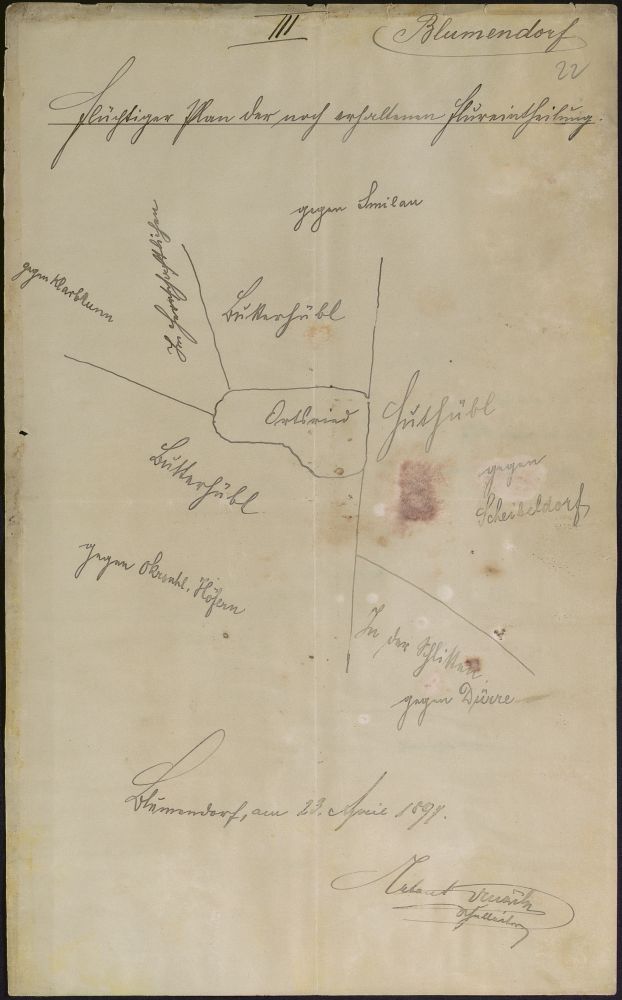 III
Blumendorf
22
Flüchtiger Plan der noch erhaltenen Flureintheilung.
gegen Smilau
gegen
Im Herrschaftlichen
Butterhübl
Ortsried
Huthübl
Butterhübl
gegen
Scheibeldorf
gegen Okrouhl. Höfern
In der Schlitten
gegen Dürre
Blumendorf, am 23. April 1897.
Schulleiter